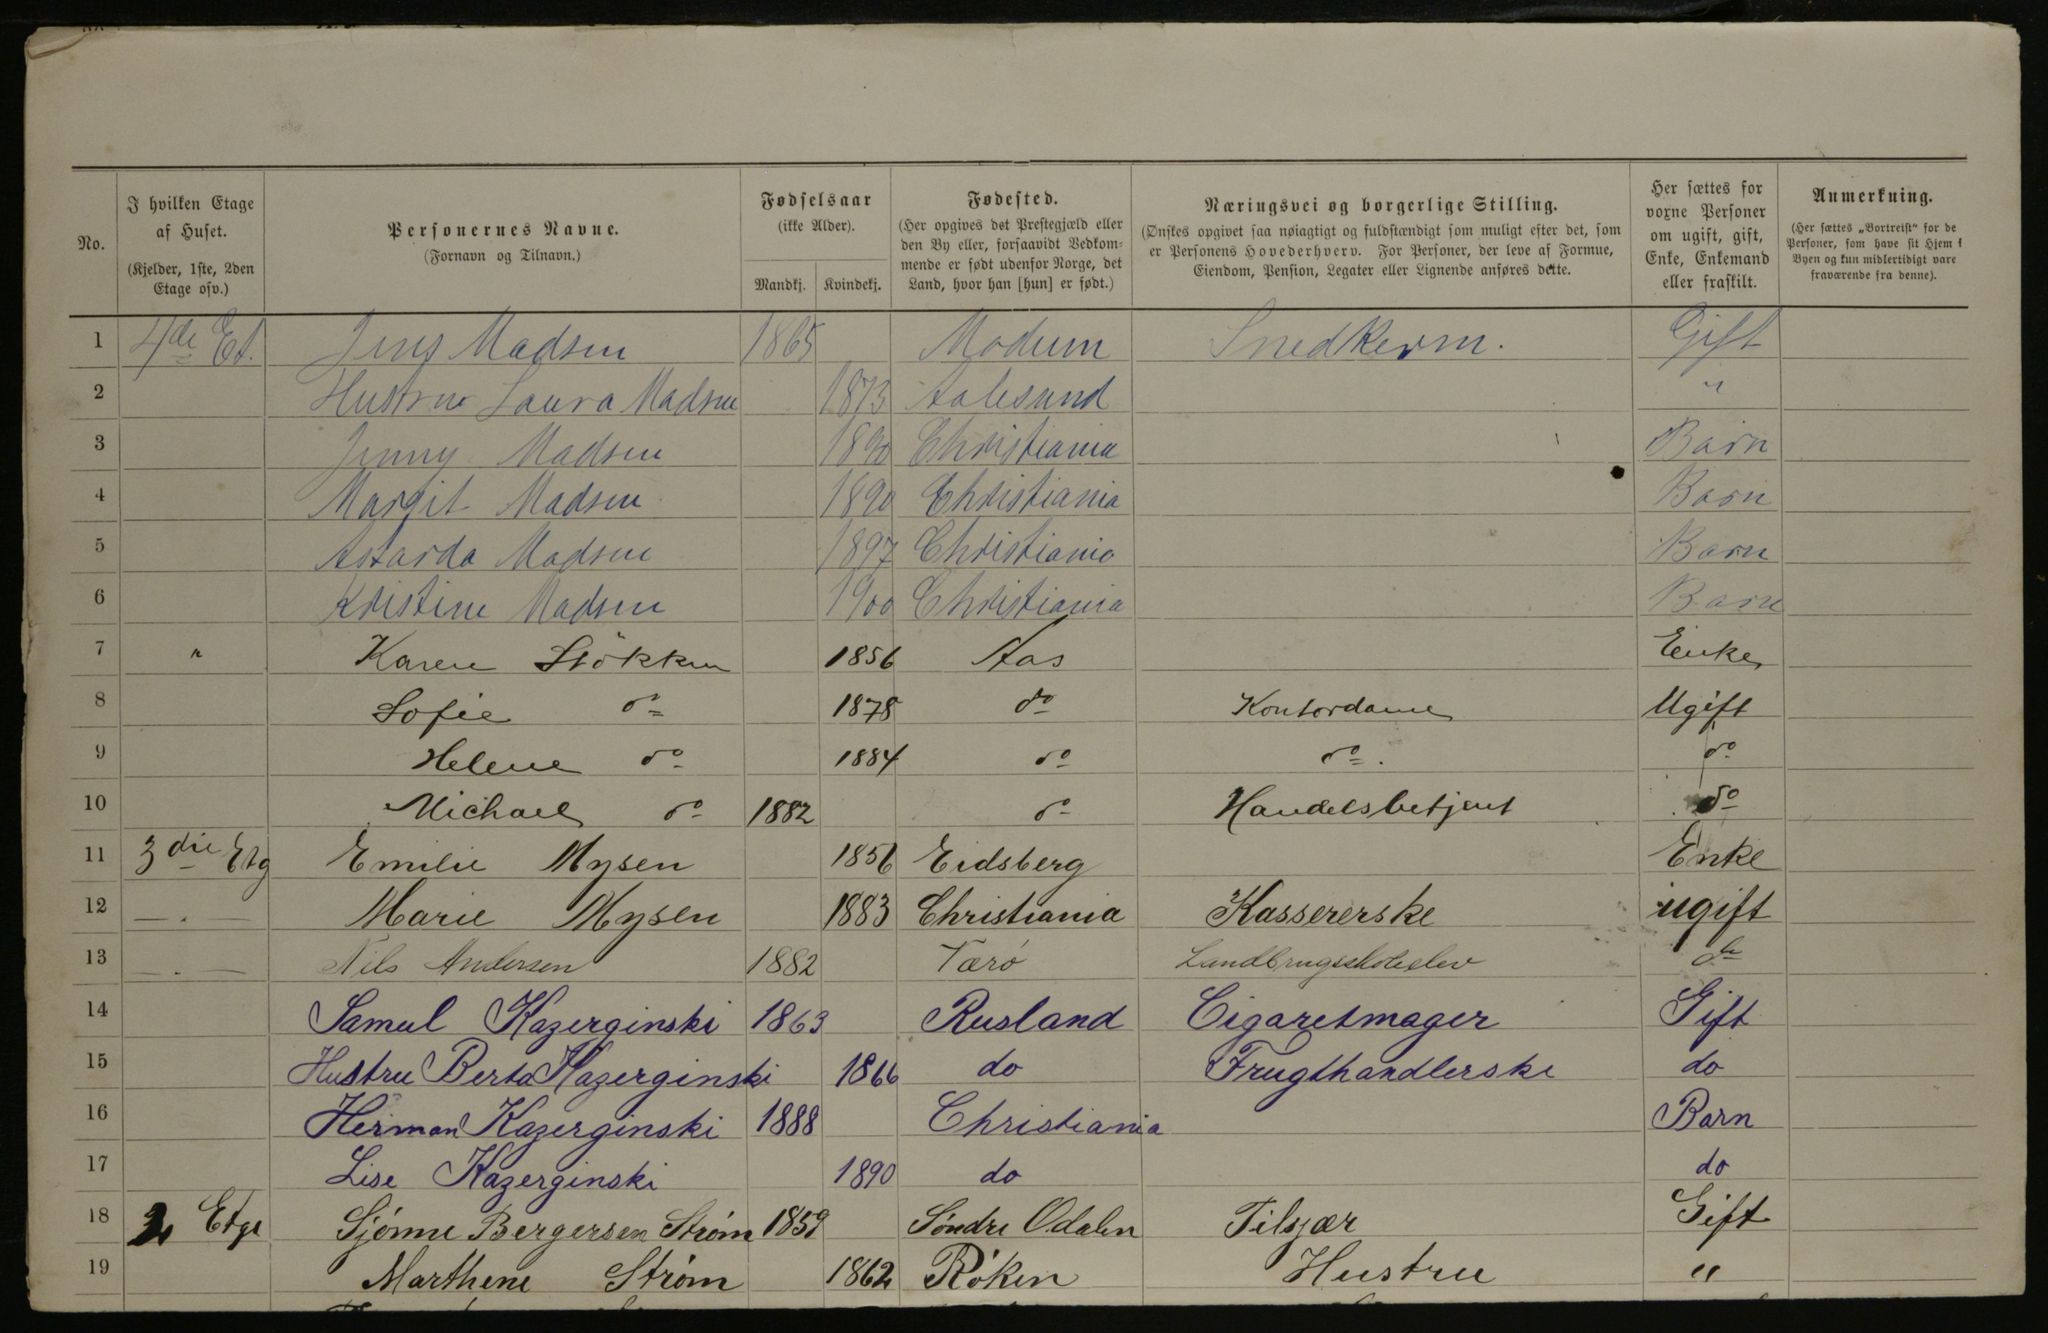 No.
I hvilken Etage af Huset. (Kjelder, 1ste, 2den Etage osv.)
Personernes Navne. (Fornavn og Tilnavn.)
Fødselsaar (ikke Alder). Mandkj. Kvindekj.
Fødested. (Her opgives det Præstegjæld eller den By eller, forsaavidt Vedkommende er født udenfor Norge, det Land, hvor han [hun] er født.)
Næringsvei og borgerlige Stilling. (Ønskes opgivet saa nøiagtigt og fuldstændigt som muligt efter det, som er Personens Hovederhverv. For Personer, der leve af Formue, Eiendom, Pension, Legater eller Lignende anføres dette.
Her sættes for voxne Personer om ugift, gift, Enke, Enkemand eller fraskilt.
Anmerkning. (Her sættes „Bortreist“ for de Personer, som have sit Hjem i Byen og kun midlertidigt vare fraværende fra denne).
1 4de Et. Jens Madsen 1865 Modum Snedkersv. Gift
2 Hustru Laura Madsen 1873 Aalesund "
3 Jenny Madsen 1890 Christiania Barn
4 Margit Madsen 1890 Christiania Barn
5 Madsen 1897 Christiania Barn
6 Kristine Madsen 1900 Christiania Barn
7 " Karen Stökken 1856 Aas Enke
8 Sofie do 1878 do Kontordame Ugift
9 Helene do 1884 do do. do
10 Michael do 1882 do Handelsbetjent do
11 3die Etg Emilie Mysen 1856 Eidsberg Enke
12 —.— Marie Mysen 1883 Christiania Kassererske ugift
13 —.— Nils Andersen 1882 Værö Landbrugsskoleelev do
14 Samul Kazerginski 1863 Rusland Cigaretmager Gift
15 Hustru Berta Kazerginski 1866 do Frugthandlerske do
16 Herman Kazerginski 1888 Christiania Barn
17 Lise Kazerginski 1890 do do
18 2 Etge Sjönne Bergersen Strøm 1859 Söndre Odalen Tilsjær Gift
19 Marthene Strøm 1862 Röken Hustru "